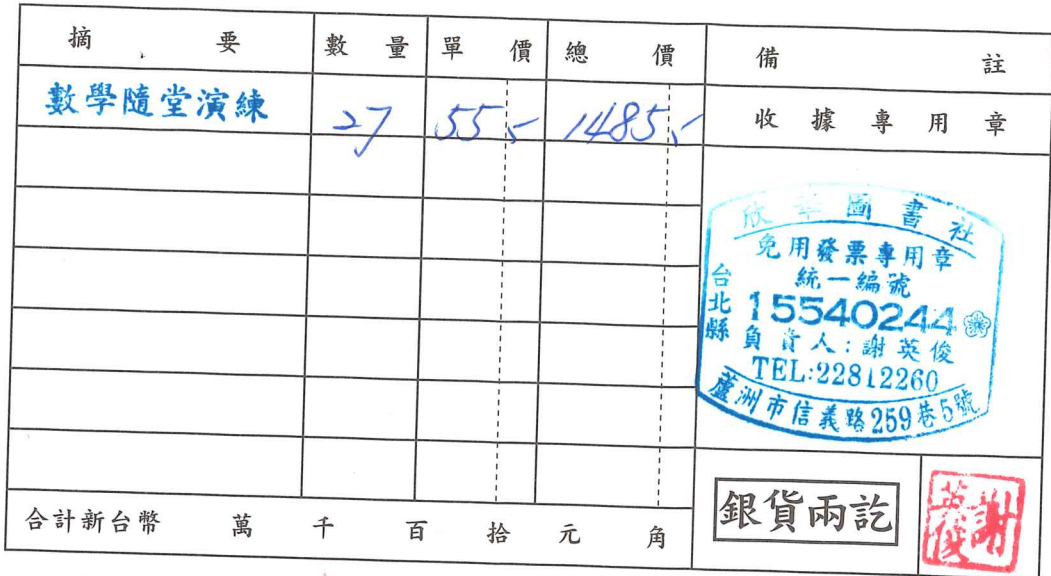 摘要 數量 單價 總價 備註
數學隨堂演練 27 55,- 1485,- 收據專用章
欣華圖書社
免用發票專用章
統一編號
台北縣
15540244
負責人:謝英俊
TEL:22812260
蘆洲市信義路259巷5號
合計新台幣 萬 千 百 拾 元 角
銀貨兩訖
謝英俊